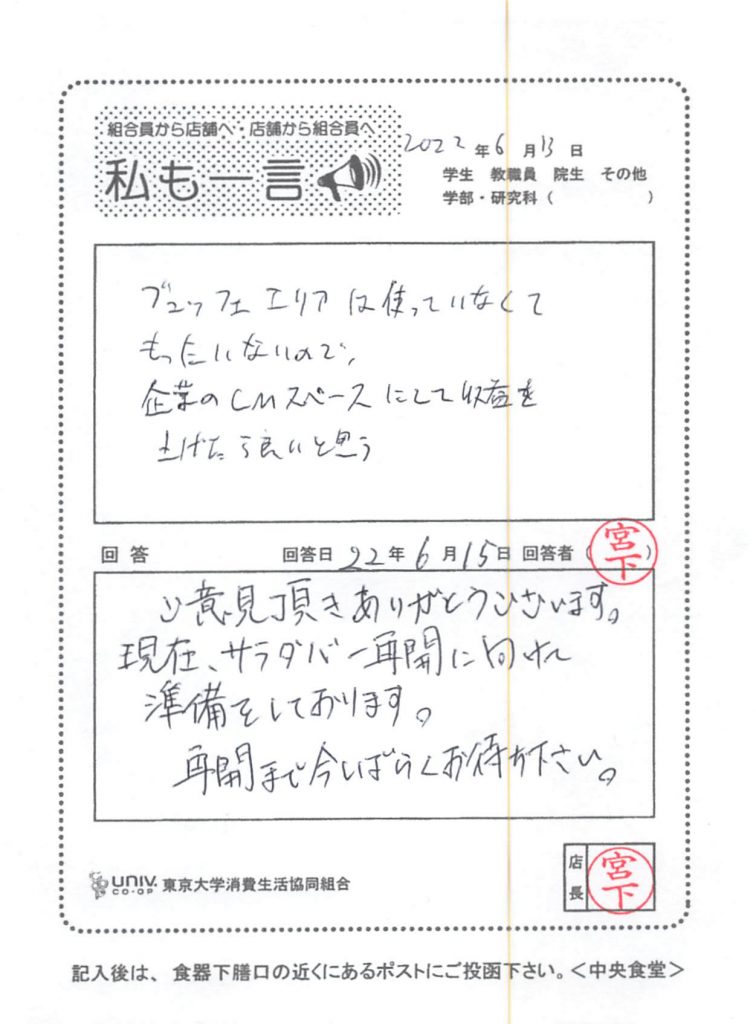 組合員から店舗へ・店舗から組合員へ
私も一言
2022年6月13日
学生 教職員 院生 その他
学部・研究科( )
ブュッフェエリアは使っていなくて
もったいないので、
企業のCMスペースにして収益を
上げたら良いと思う
回答 回答日 22年6月15日 回答者(宮下)
ご意見頂きありがとうございます。
現在、サラダバー再開に向けた
準備をしております。
再開まで今しばらくお待ち下さい。
UNIV. CO-OP 東京大学消費生活協同組合
店長 宮下
記入後は、食器下膳口の近くにあるポストにご投函下さい。<中央食堂>